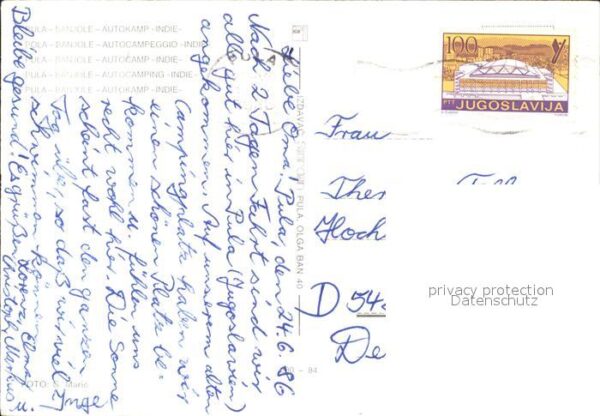 PULA - BANJOLE - AUTOKAMP -INDIE-
PULA - BANJOLE - AUTOCAMPEGGIO -INDIE-
PULA - BANJOLE - AUTOCAMP -INDIE-
PULA - BANJOLE - AUTOCAMPING -INDIE-
PULA - BANJOLE - AUTOKAMP -INDIE-
Pula, den 24.6.86
Liebe Oma!
Nach 2 Tagen Fahrt sind wir
alle gut hier in Pula (Jugoslavien)
angekommen. Auf unserem alten
Campingplatz haben wir
einen schönen Platz be-
kommen u. fühlen uns
recht wohl hier. Die Sonne
scheint fast den ganzen
Tag über, so daß wir viel
schwimmen können.
Bleibe gesund! Es grüßen
Inge
Christoph, Markus u.
FOTO:
PULA, OLGA BAN 40
- 84
100
PTT JUGOSLAVIJA
PULA
Frau
Ther
Hoch
D 54
De
privacy protection
Datenschutz